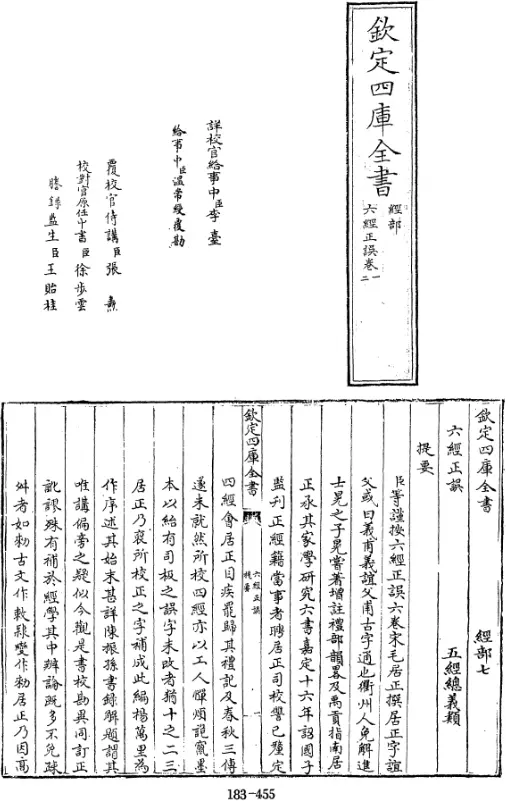 欽定四庫全書
經部
六經正誤卷一
二
詳校官給事中臣李臺
給事中臣溫常綬覆勘
覆校官侍講臣張燾
校對官原任中書臣徐步雲
謄錄監生臣王貽桂
欽定四庫全書
經部七
六經正誤
五經總義類
提要
臣等謹按六經正誤六卷宋毛居正撰居正字誼
父或曰義甫義誼父甫古字通也衢州人免解進
士晃之子晃嘗著增註禮部韻畧及禹貢指南居
正承其家學研究六書嘉定十六年詔國子
監刊正經籍當事者聘居正司校讐已釐定
欽定四庫全書
六經正誤
提要
一
四經會居正目疾罷歸其禮記及春秋三傳
遂未就然所校四經亦以工人憚煩詭竄墨
本以紿有司板之誤字未改者猶十之二三
居正乃裒所校正之字補成此編楊萬里為
作序述其始末甚詳陳振孫書錄解題謂其
唯講偏旁之疑似今觀是書校勘異同訂正
訛謬殊有補於經學其中辨論既多不免疎
舛者如勑古文作敕隸變作勑居正乃因高
183-455